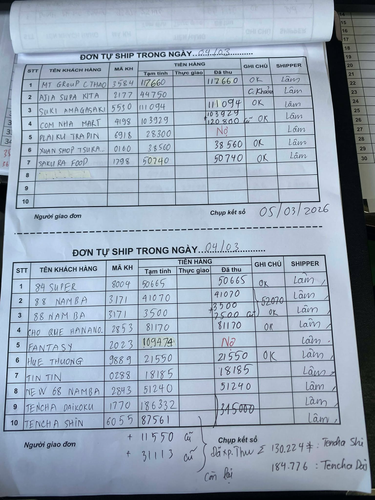 ĐƠN TỰ SHIP TRONG NGÀY 04/03
STT TÊN KHÁCH HÀNG MÃ KH TIỀN HÀNG GHI CHÚ SHIPPER
Tạm tính Thực giao Đã thu
1 MT GROUP C THAO 3584 117660 117660 OK Lâm
2 AJIA SUPA KITA 3177 44750 C.Khoản Lâm
3 SUKI AMAGASAKI 5530 111094 111094 OK Lâm
4 COM NHA MART 4198 103929 103929 OK Lâm
120800
5 PLAIKU TRAPIN 6918 28300 Nợ Lâm
6 XUAN SHOP TSURA 0160 38560 38560 OK Lâm
7 SAKURA FOOD 1798 50740 50740 OK Lâm
8
9
10
Người giao đơn Chụp kết số 05/03/2026
ĐƠN TỰ SHIP TRONG NGÀY 04/03
STT TÊN KHÁCH HÀNG MÃ KH TIỀN HÀNG GHI CHÚ SHIPPER
Tạm tính Thực giao Đã thu
1 89 SUPER 8009 50665 50665 OK Lâm
2 88 NAMBA 3171 41070 41070 Lâm
52070
3 88 NAM BA 3171 3500 3500 OK Lâm
7500 cũ
4 CHO QUE HANANO 2853 81170 81170 OK Lâm
5 FANTASY 2023 109474 Nợ Lâm
6 HUE THUONG 9889 21550 21550 OK Lâm
7 TIN TIN 0288 18185 18185 Lâm
8 NEW 68 NAMBA 2843 51240 51240 Lâm
9 TENCHA DAIKOKU 1770 186332 345000 Lâm
10 TENCHA SHIN 6055 87561 Lâm
Người giao đơn + 11550 cũ Chụp kết số
+ 31113 cũ Đã sp.Thu Σ 130.224 ¥ : Tencha Shi
Còn lại 184.776 : Tencha Dai